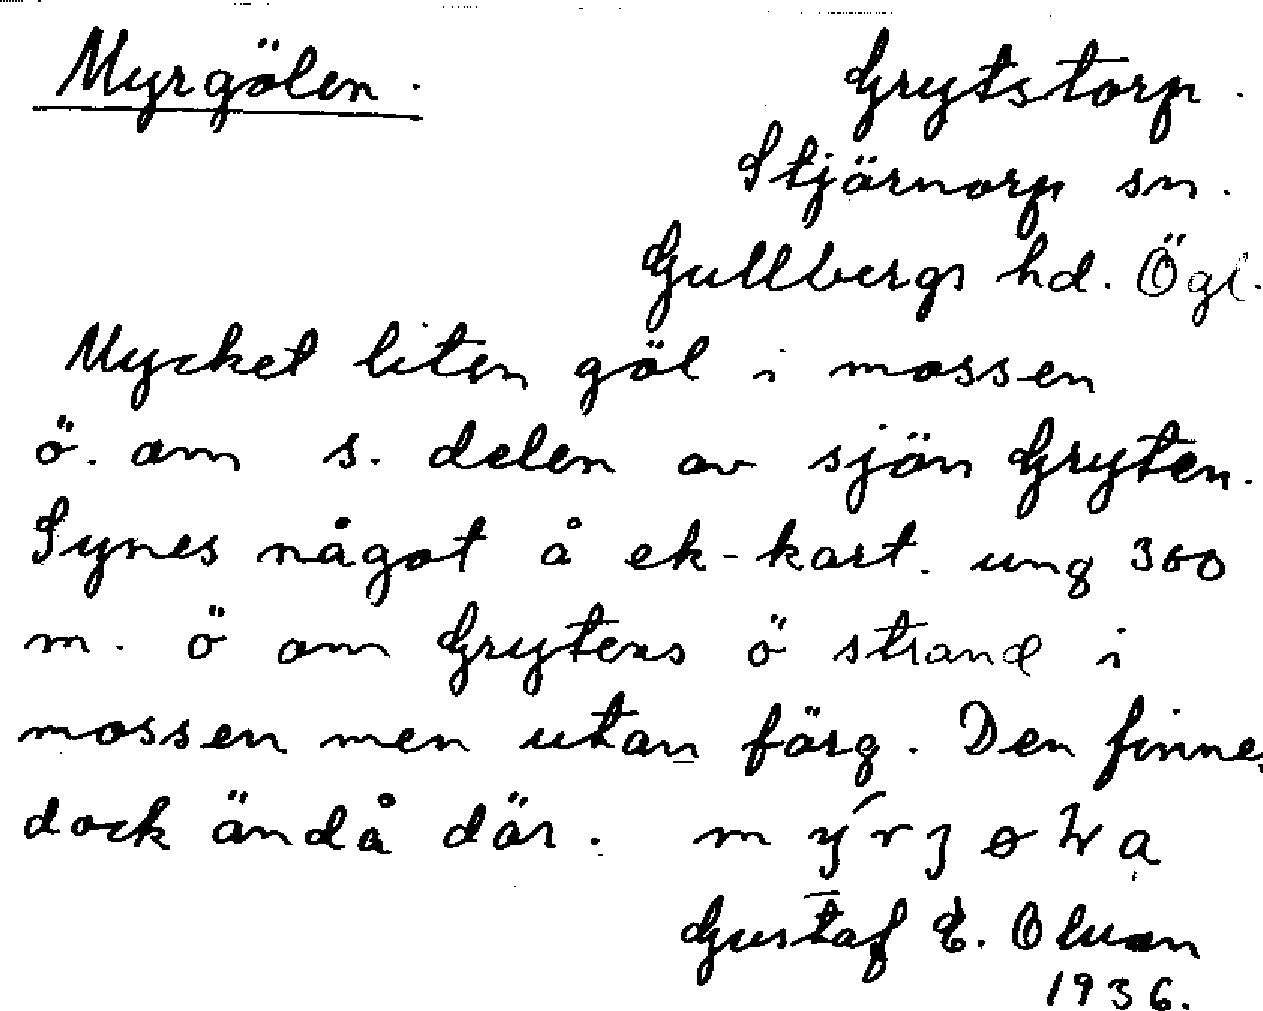 Myrgölen. Grytstorp.
Stjärnorp sn.
Gullbergs hd. Ögl.
Mycket liten göl i mossen
ö. om s. delen av sjön Gryten.
Synes något å ek-kart. ung 300
m. ö om Grytens ö strand i
mossen men utan färg. Den finnes
dock ändå där.
Gustaf E. Olsson
1936.